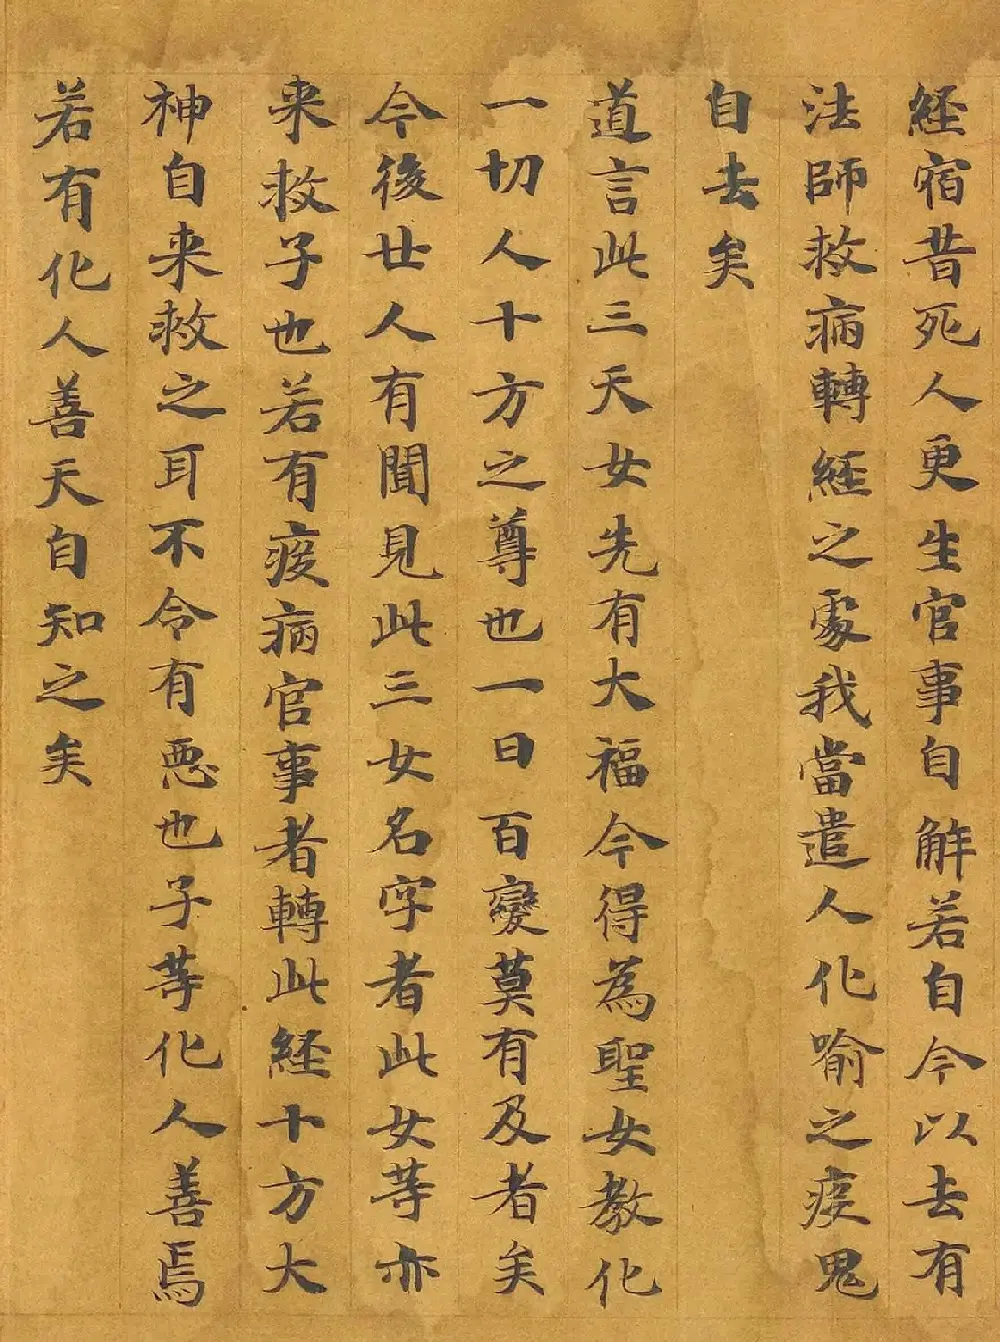 經宿昔死人更生官事自解若自今以去有
法師救病轉經之處我當遣人化喻之疾鬼
自去矣
道言此三天女先有大福今得為聖女教化
一切人十方之尊也一日百變莫有及者矣
今後世人有聞見此三女名字者此女等亦
来救子也若有疫病官事者轉此經十方大
神自来救之耳不令有惡也子等化人善焉
若有化人善天自知之矣